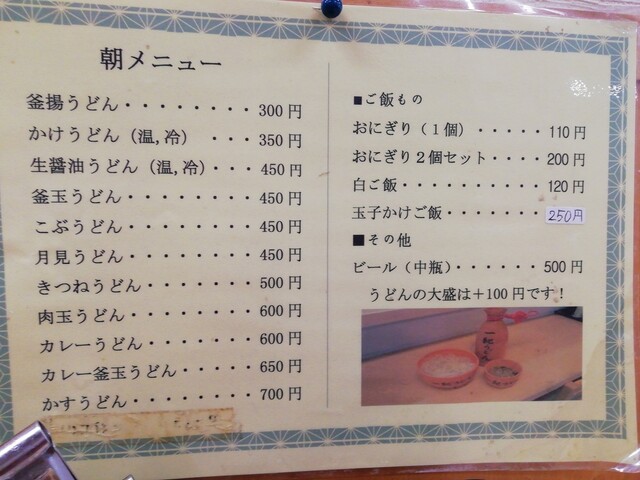 朝メニュー
釜揚うどん・・・・・・・・・300円
かけうどん（温,冷）　・・・350円
生醤油うどん（温,冷）・・・450円
釜玉うどん・・・・・・・・・450円
こぶうどん・・・・・・・・・450円
月見うどん・・・・・・・・・450円
きつねうどん・・・・・・・・500円
肉玉うどん・・・・・・・・・600円
カレーうどん・・・・・・・・600円
カレー釜玉うどん・・・・・・650円
かすうどん・・・・・・・・・700円
■ご飯もの
おにぎり（１個）・・・・・110円
おにぎり２個セット・・・・200円
白ご飯・・・・・・・・・・120円
玉子かけご飯・・・・・・・250円
■その他
ビール（中瓶）・・・・・・500円
うどんの大盛は＋100円です！